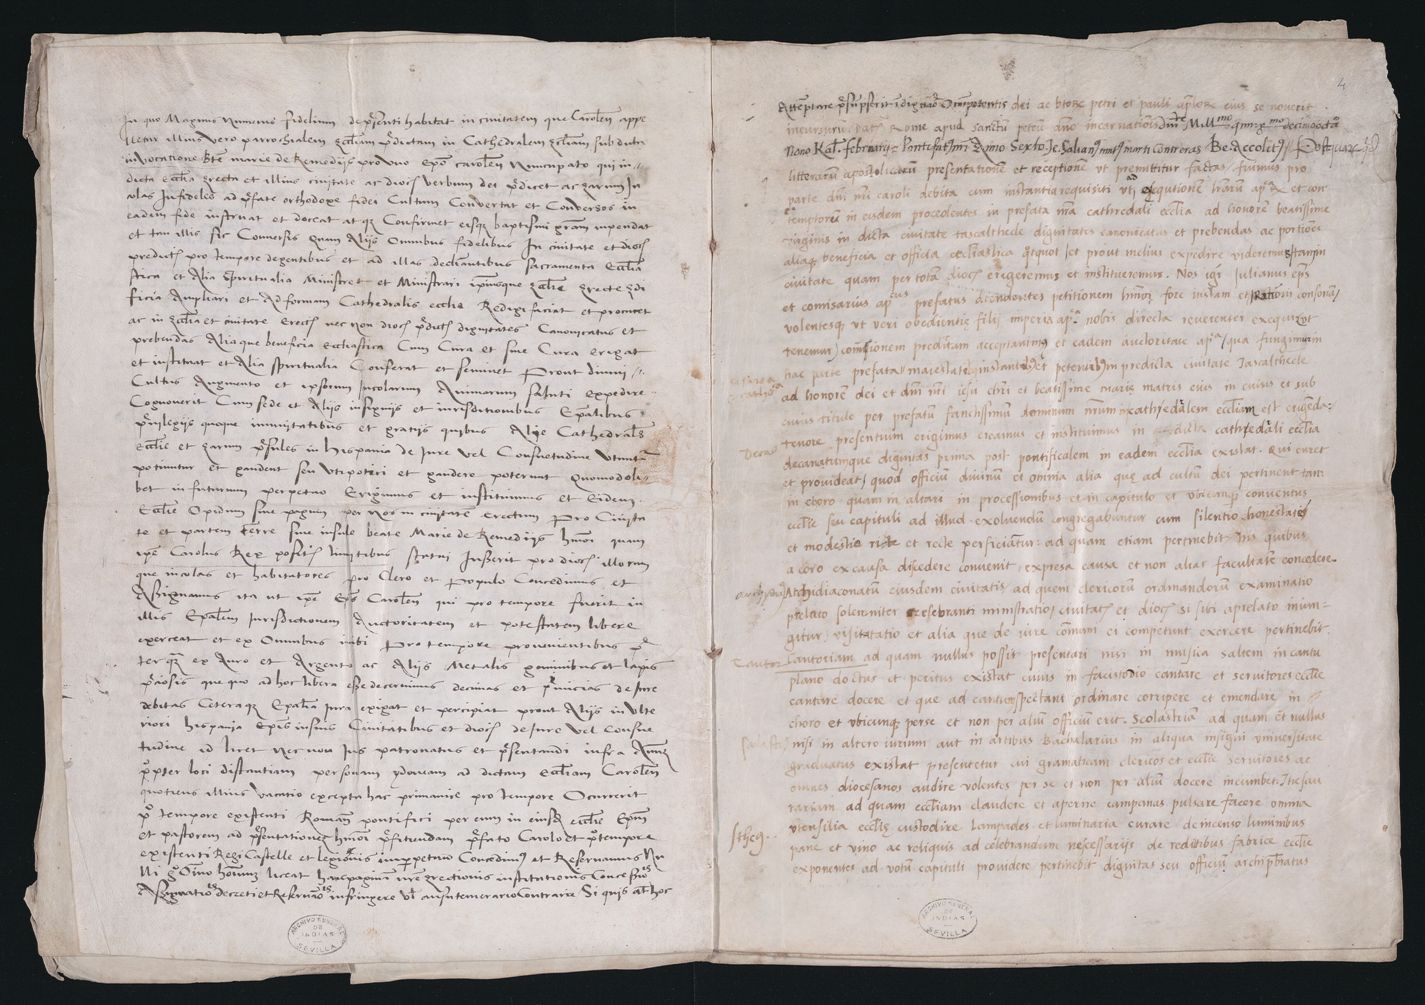 In quo Magnus Numerus fidelium de pñti habitat in ciuitatem que Carolen appe
lletur illius vero parrochialem Eccliam pdictam in Cathedralem Eccliam sub dicta
Inuocatione Bte marie de Remedijs pro vno Epo carolen Nuncupato qui in
dicta ecclia erecta et illius ciuitate ac dioces verbum dei pdicet ac earum In
colas Infideles ad pfate orthodoxe fidei Cultum Conuertat et Conuersos in
eadem fide instruat et doceat atqz Confirmet eisqz baptismi gram impendat
et tam illis sic Conuersis quam Alijs Omnibus fidelibus In ciuitate et dioces
predictis pro tempore degentibus et ad illas declinantibus sacramenta Ecclia
stica et Alia Spiritualia Ministret et Ministrari ipsamque Eccliae erecte Edi
ficia Ampliari et Ad formam Cathedralis ecclie Redigi faciat et procuret
ac in Ecclia et ciuitate erectis nec non dioces pdictis dignitates Canonicatus et
prebendas Aliaque beneficia ecclesiastica Cum Cura et sine Cura erigat
et instituat et Alia spiritualia Conferat et seminet Prout diuini
Cultus Augmento et ipsorum Incolarum Animarum saluti expedire
Cognouerit Cum sede et Alijs insignijs et iurisdictionibus Epalibus
priuilegijs quoque immunitatibus et gratijs quibus Alie Cathedrales
Ecclie et earum psules in hispania de Iure vel Consuetudine Vtuntur
potiuntur et gaudent seu Vti potiri et gaudere poterunt Quomodoli
bet in futurum perpetuo Erigimus et instituimus et Eidem
Ecclie Opidum siue pagum per nos in ciuitatem erectum Pro Ciuita
te et partem terre siue insule beate Marie de Remedijs hmoi quam
ipse Carolus Rex positis limitibus statui Iusserit pro dioces illorum
que incolas et habitatores pro Clero et Populo Concedimus et
Assignamus ita ut ipse Eps Carolen qui pro tempore fuerit in
illis Epalem Iurisdictionem Auctoritatem et potestatem libere
exerceat et ex Omnibus inibi Pro tempore prouenientibus p
terqz ex Auro et Argento ac Alijs Metalis gemmibus et lapis
pciosis que quo ad hoc libera esse decernimus decimas et primicias de Iure
debitas Ceteraqz Epalia Iura exigat et percipiat prout Alijs in Vlte
riori hispania Epis in suis Ciuitatibus et dioces de Iure vel Consue
tudine id licet Nec non Ius patronatus et psentandi infra Annuz
propter loci distantiam personam ydoneam ad dictam eccliam Carolen
quotiens illius vacatio excepta hac primaria pro tempore Ocurrerit
pro tempore existenti Romano pontifici per eum in eiusdz ecclie Epum
et pastorem ad psentationez hmoi pficiendum pfato Carolo et pro tempore
existenti Regi Castelle et legionis imppetuum Concedimus et Reseruamus Nu
lli go Oino hominum liceat hanc paginam nre erectionis institutionis Concessionis
Assignationis decreti et Reseruationis infringere Vel ausu temerario Contraire Si quis aut hoc
ARCHIVO GENERAL DE INDIAS SEVILLA
4
Attentare psumpserit indignaoem Omnipotentis dei ac btorz petri et pauli aplorz eius se nouerit
incursurum. Dat Rome apud sanctum petrum Anno incarnationis Dnice M. Mmo qmgmo decimooctauo
Nono Kal. februarij Pontificatus nri Anno Sexto
litterarum apostolicarum presentationem et receptionem vt premittitur factas fuimus pro
parte dni nri caroli debita cum instantia requisiti vt ad exqutionem lrarum aplicarum et con
temptorum in eisdem procedentes in prefata nra cathredali ecclia ad honorem beatissime
virginis in dicta ciuitate tascalthecle dignitates canonicatus et prebendas ac portiones
aliaqz beneficia et officia ecclesiastica quotquot et prout melius expedire videremus tam in
ciuitate quam per totam dioces erigeremus et institueremus. Nos igr Iulianus eps
et comisarius aplicus prefatus attendentes petitionem hmoi fore iustam et rationi consonam
volentesqz vt veri obedientie filij imperia aplica nobis directa reuerenter exequi vt
tenemur comissionem predictam acceptantes et eadem auctoritate aplica qua fungimur in
hac parte prefata maiestate instante et petente in predicta ciuitate Tascalthecle
ad honorem dei et dni nri iesu chri et beatissime marie matris eius in cuius et sub
cuius titulo per prefatum sanctissimum dominum nrum cathedralem eccliam est erigenda
tenore presentium erigimus creamus et instituimus in dicta cathredali ecclia
decanatumque dignitas prima post pontificalem in eadem ecclia existat. Qui curet
et prouideat, quod officium diuinum et omnia alia que ad cultum dei pertinent tam
in choro quam in altari in processionibus et in capitulo et vbicumqz conuentus
ecclie seu capituli ad illud exoluendum congregabuntur cum silentio honestate
et modestia rite et recte perficiatur: ad quam etiam pertinebit his quibus
a choro ex causa discedere conuenit, expresa causa et non alias facultatem concedere
Archidiaconatum eiusdem ciuitatis ad quem clericorum ordinandorum examinatio
prelato solemniter celebranti ministratio ciuitatis et dioces si sibi a prelato iniun-
gitur, visitatatio et alia que de iure comuni ei competunt exercere pertinebit.
Cantoriam ad quam nullus possit presentari nisi in musica saltem in cantu
plano doctus et peritus existat cuius in facistorio cantare et seruitores ecclie
cantare docere et que ad cantum spectant ordinare corripere et emendare in
choro et vbicunqz per se et non per alium officium erit. Scolastriam ad quam et nullus
nisi in altero iurium aut in artibus Bachalarius in aliqua insigni vniuersitate
graduatus existat presentetur qui gramaticam clericos et ecclie seruitores ac
omnes diocesanos audire volentes per se et non per alium docere incumbet. Thesau
rariam ad quam eccliam claudere et aperire campanas pulsare facere omnia
vtensilia ecclie custodire lampades et luminaria curare de incenso luminibus
pane et vino ac reliquis ad celebrandum necessarijs de reditibus fabrice ecclie
exponentes ad votum capituli prouidere pertinebit dignitas seu officium archipbratus
Decan
Cantor
thes
ARCHIVO GENERAL DE INDIAS SEVILLA